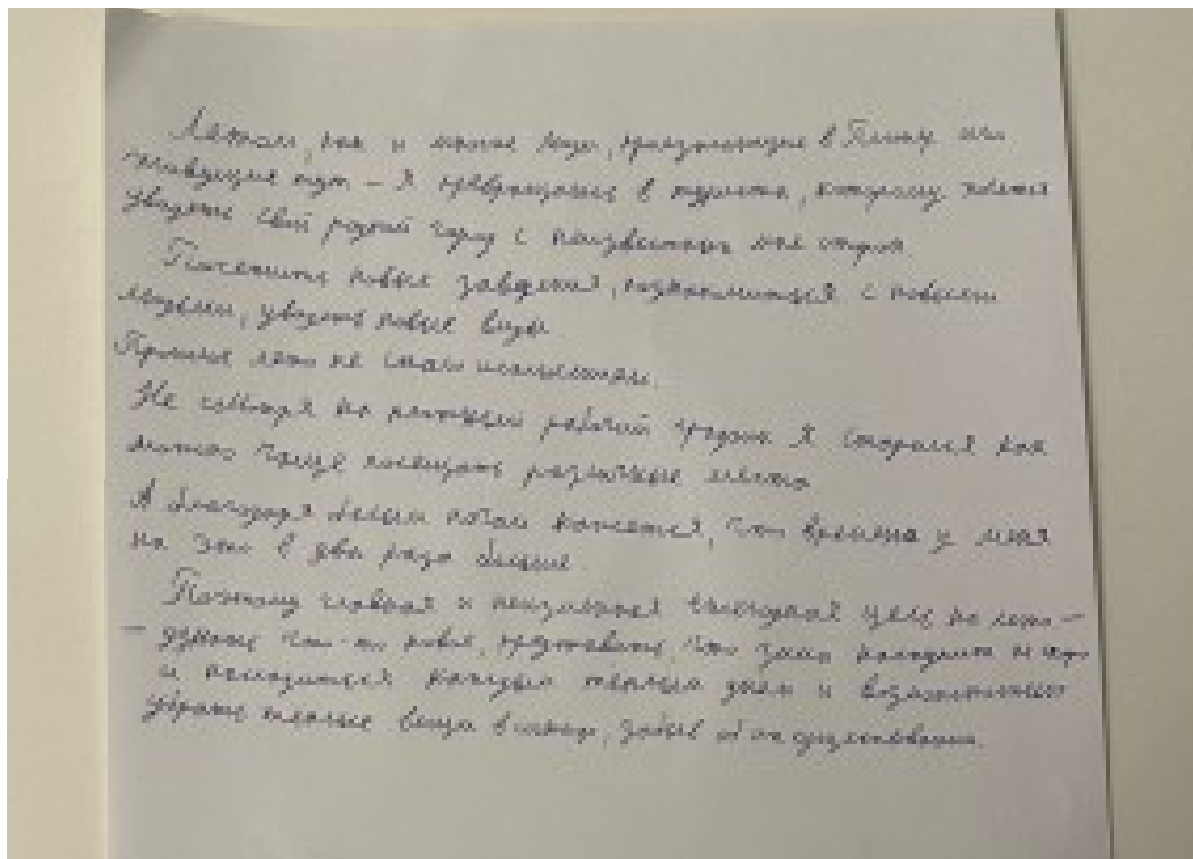 Летом, как и многие люди, приезжающие в Питер или
живущие тут – я превращаюсь в туриста, которому хочется
увидеть свой родной город с неизвестных мне сторон.
Посетить новые заведения, познакомиться с новыми
людьми, увидеть новые виды.
Прошлое лето не стало исключением.
Не смотря на плотный рабочий график я старался как
можно чаще посещать различные места
А благодаря белым ночам кажется, что времени у меня
на это в два раза больше.
Поэтому главная и неизменная ежегодная цель на лето –
– узнать что-то новое, представить, что зима никогда не
и насладиться каждым тёплым днём и возможностью
убрать тёплые вещи в шкаф, забыв об их существовании.